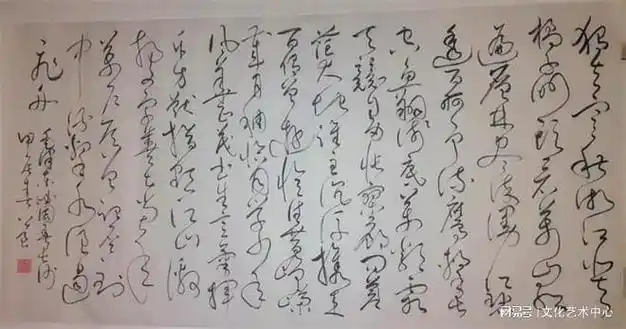 独立寒秋湘江北去
橘子洲头看万山红
遍层林尽染漫江碧
透百舸争流鹰击长
空鱼翔浅底万类霜
天竞自由怅寥廓问苍
茫大地谁主沉浮携来
百侣曾游忆往昔峥嵘
岁月稠恰同学少年
风华正茂书生意气挥
斥方遒指点江山激
扬文字粪土当年
万户侯曾记否到
中流击水浪遏
飞舟
毛泽东沁园春长沙
网易号 | 文化艺术中心